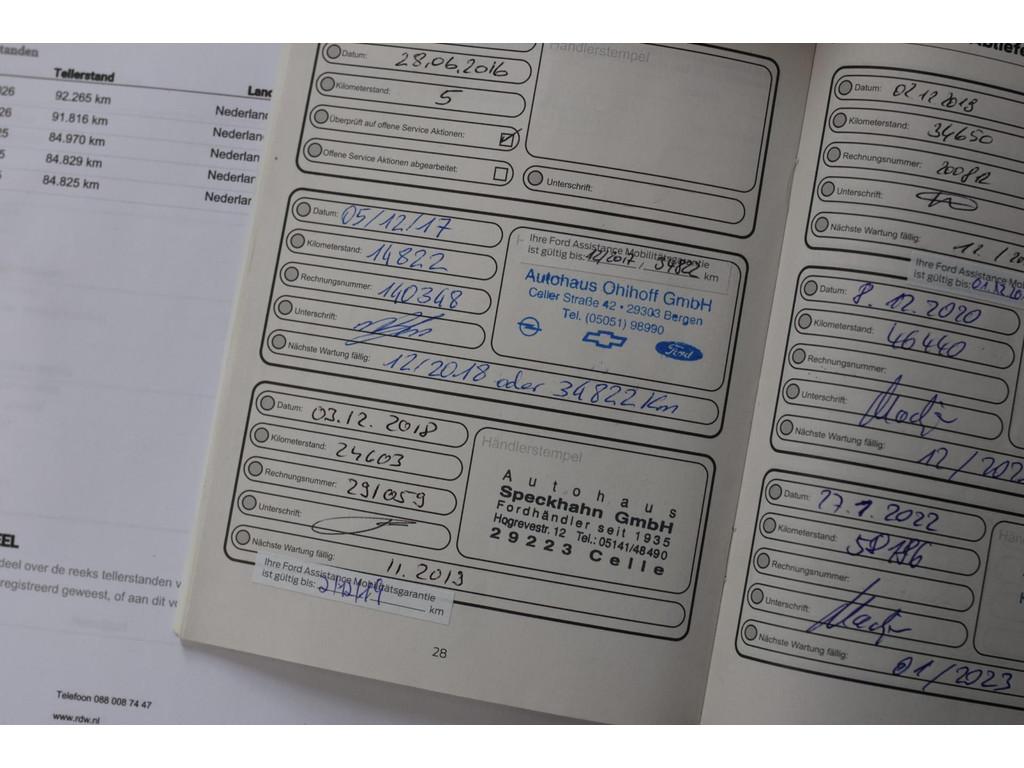 standen
Tellerstand
Land
026 92.265 km Nederlan
26 91.816 km Nederlan
25 84.970 km Nederlan
5 84.829 km Nederlan
5 84.825 km Nederlan
EEL
deel over de reeks tellerstanden v
registreerd geweest, of aan dit vo
Telefoon 088 008 74 47
www.rdw.nl
Datum: 28.06.2016
Kilometerstand: 5
Überprüft auf offene Service Aktionen:
Offene Service Aktionen abgearbeitet:
Händlerstempel
Unterschrift:
Datum: 05/12/17
Kilometerstand: 14822
Rechnungsnummer: 140348
Unterschrift:
Nächste Wartung fällig: 12/2018 oder 34822 Km
Ihre Ford Assistance Mobilitätsgarantie
ist gültig bis: 12/2017, 34822 km
Autohaus Ohlhoff GmbH
Celler Straße 42 • 29303 Bergen
Tel. (05051) 98990
Ford
Datum: 03.12.2018
Kilometerstand: 24603
Rechnungsnummer: 291059
Unterschrift:
Nächste Wartung fällig: 11.2019
Händlerstempel
Autohaus
Speckhahn GmbH
Fordhändler seit 1935
Hogrevestr. 12 Tel.: 05141/48490
29223 Celle
Ihre Ford Assistance Mobilitätsgarantie
ist gültig bis: km
28
Datum: 02.12.2019
Kilometerstand: 34650
Rechnungsnummer:
Unterschrift:
Nächste Wartung fällig:
Ihre Ford Assistance Mo
ist gültig bis:
Datum: 8.12.2020
Kilometerstand: 46440
Rechnungsnummer:
Unterschrift:
Nächste Wartung fällig: 12/202
Datum: 27.1.2022
Kilometerstand: 58186
Rechnungsnummer:
Unterschrift:
Nächste Wartung fällig: 01/2023